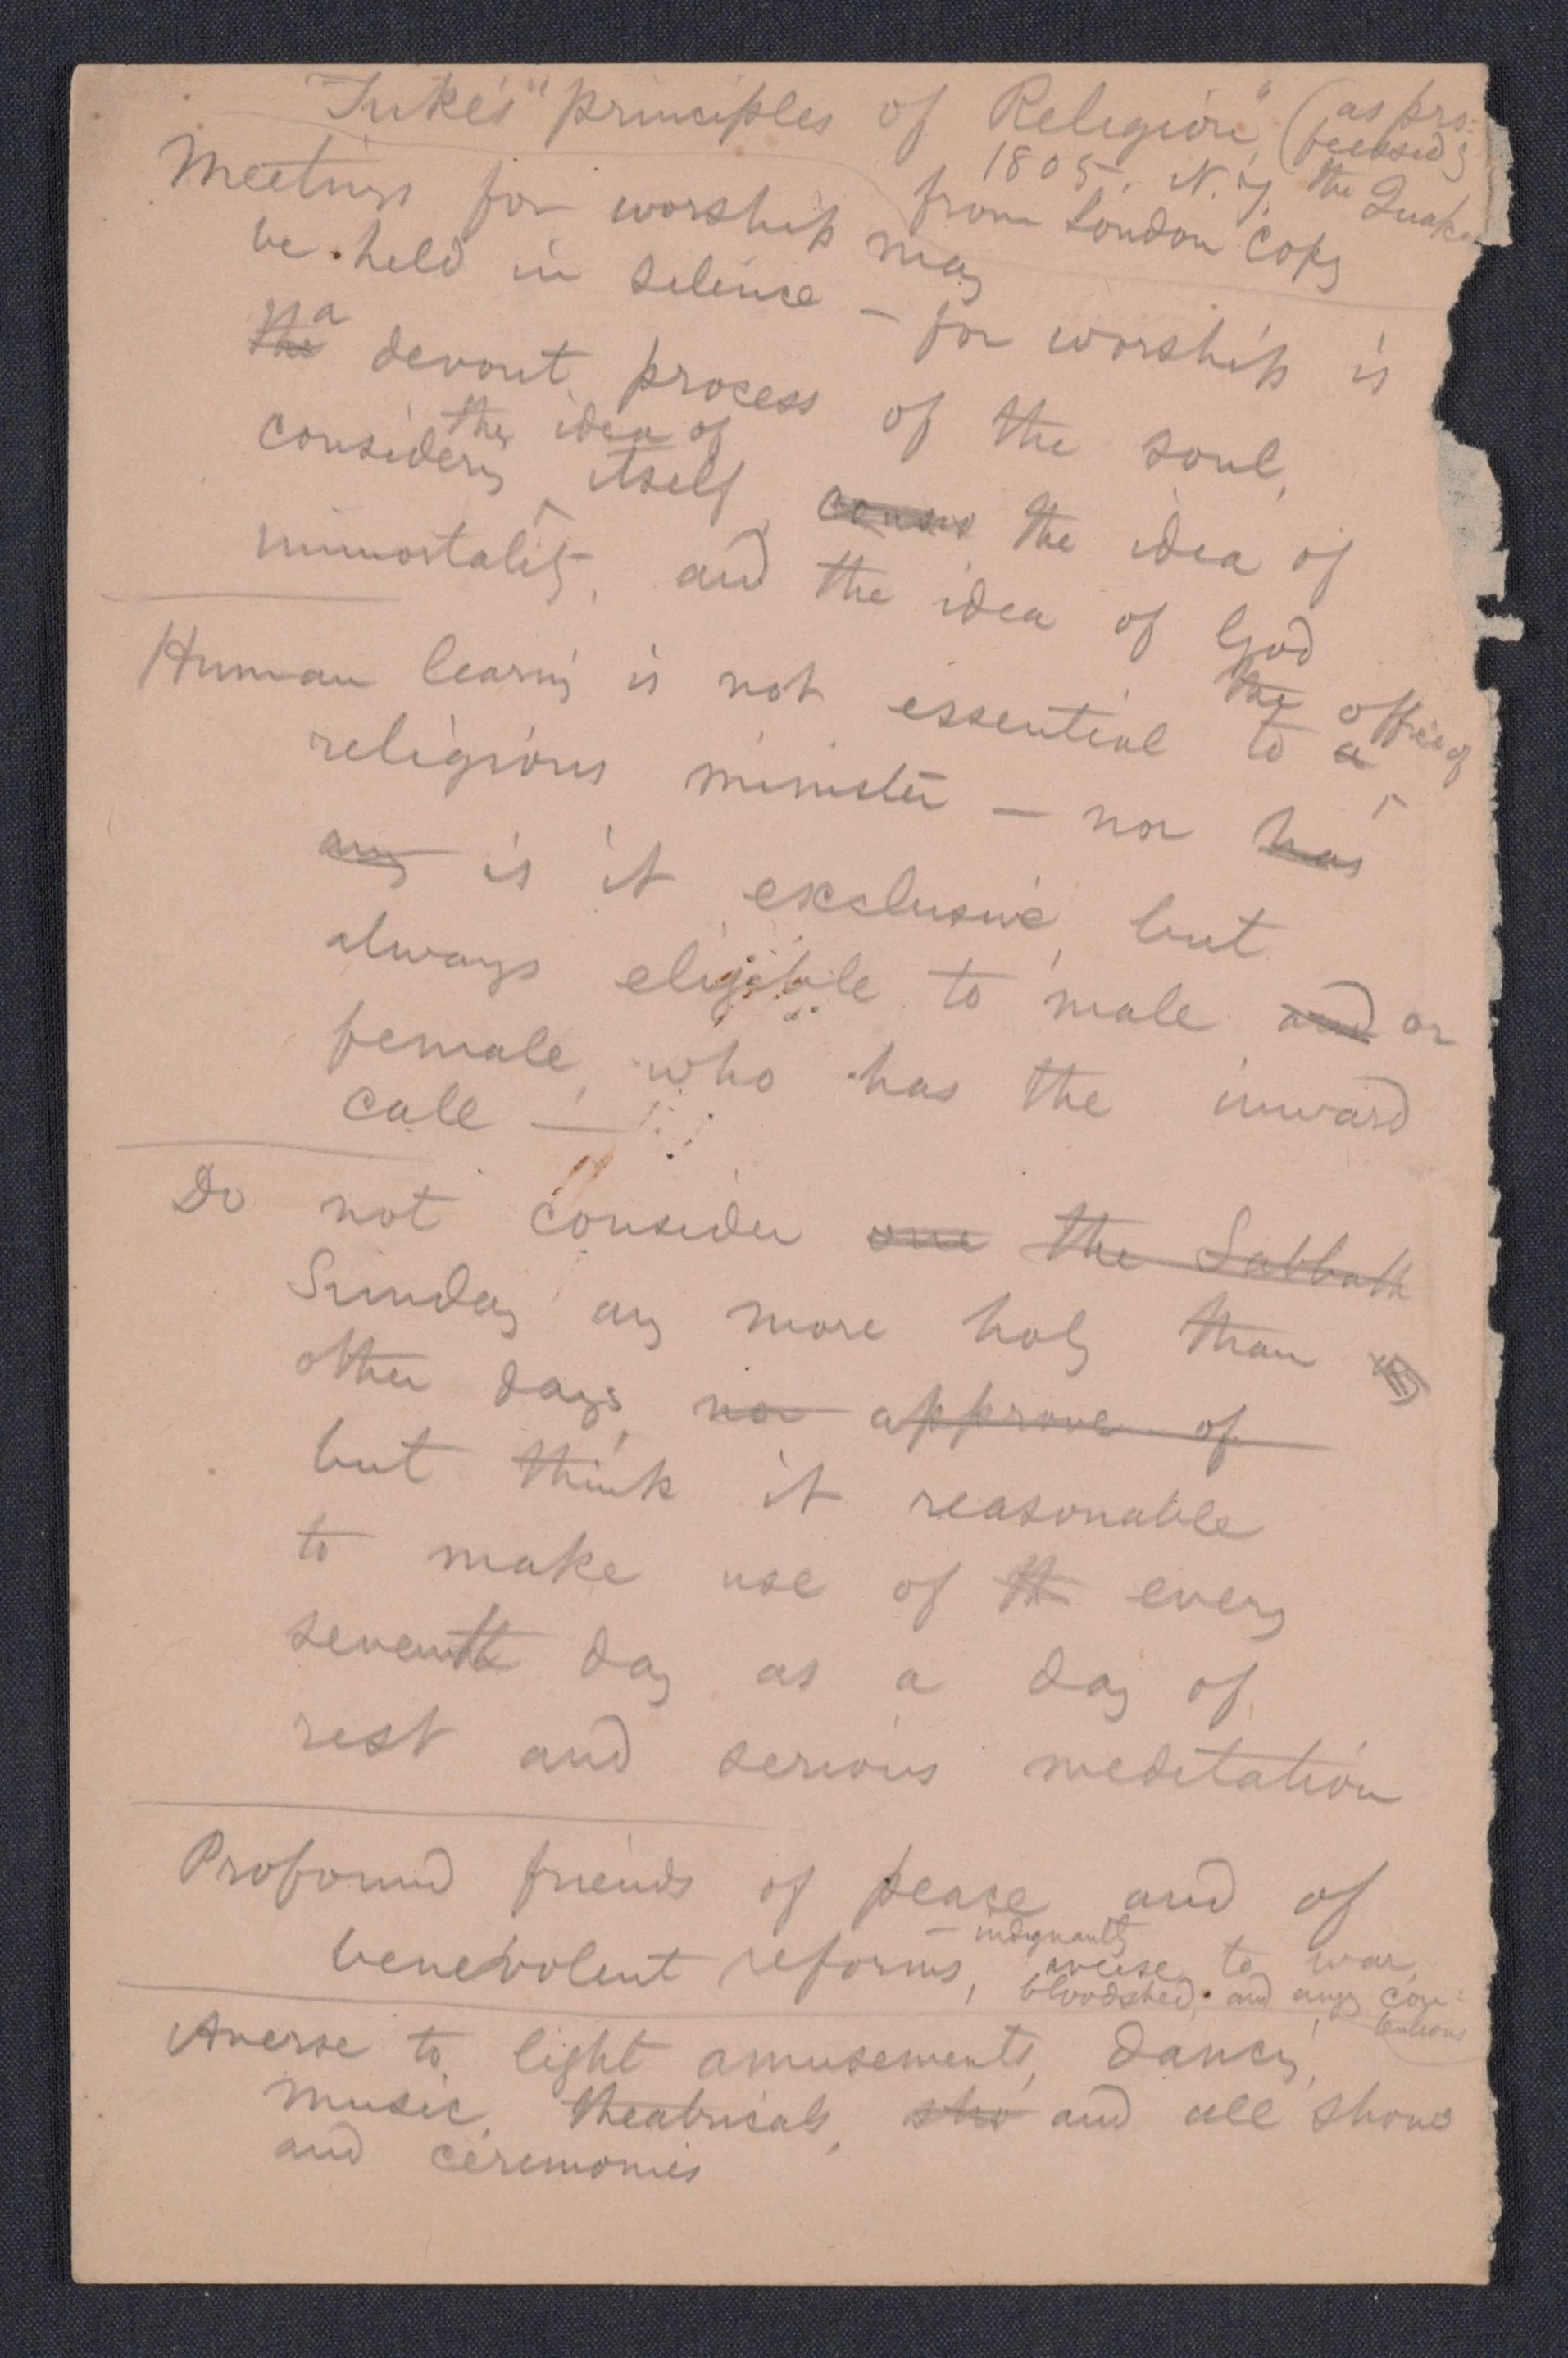 Tuke's "principles of Religion", (as pro-
fessed by
the Quakers
1805. N.Y.
from London copy
Meetings for worship may
be held in silence – for worship is
the a devout process of the soul,
the idea of
considering itself, the idea of
immortality, and the idea of God
Human learning is not essential to a the office of
religious minister – nor has
any is it exclusive, but
always eligible to male and or
female, who has the inward
call —
Do not consider one the Sabbath
Sunday any more holy than any
other days, nor approve of
but think it reasonable
to make use of th every
seventh day as a day of
rest and serious meditation
Profound friends of peace and of
benevolent reforms, – indignantly averse to war,
bloodshed, and angry con-
tentions
Averse to light amusements, dancing,
music, theatricals, sho and all shows
and ceremonies